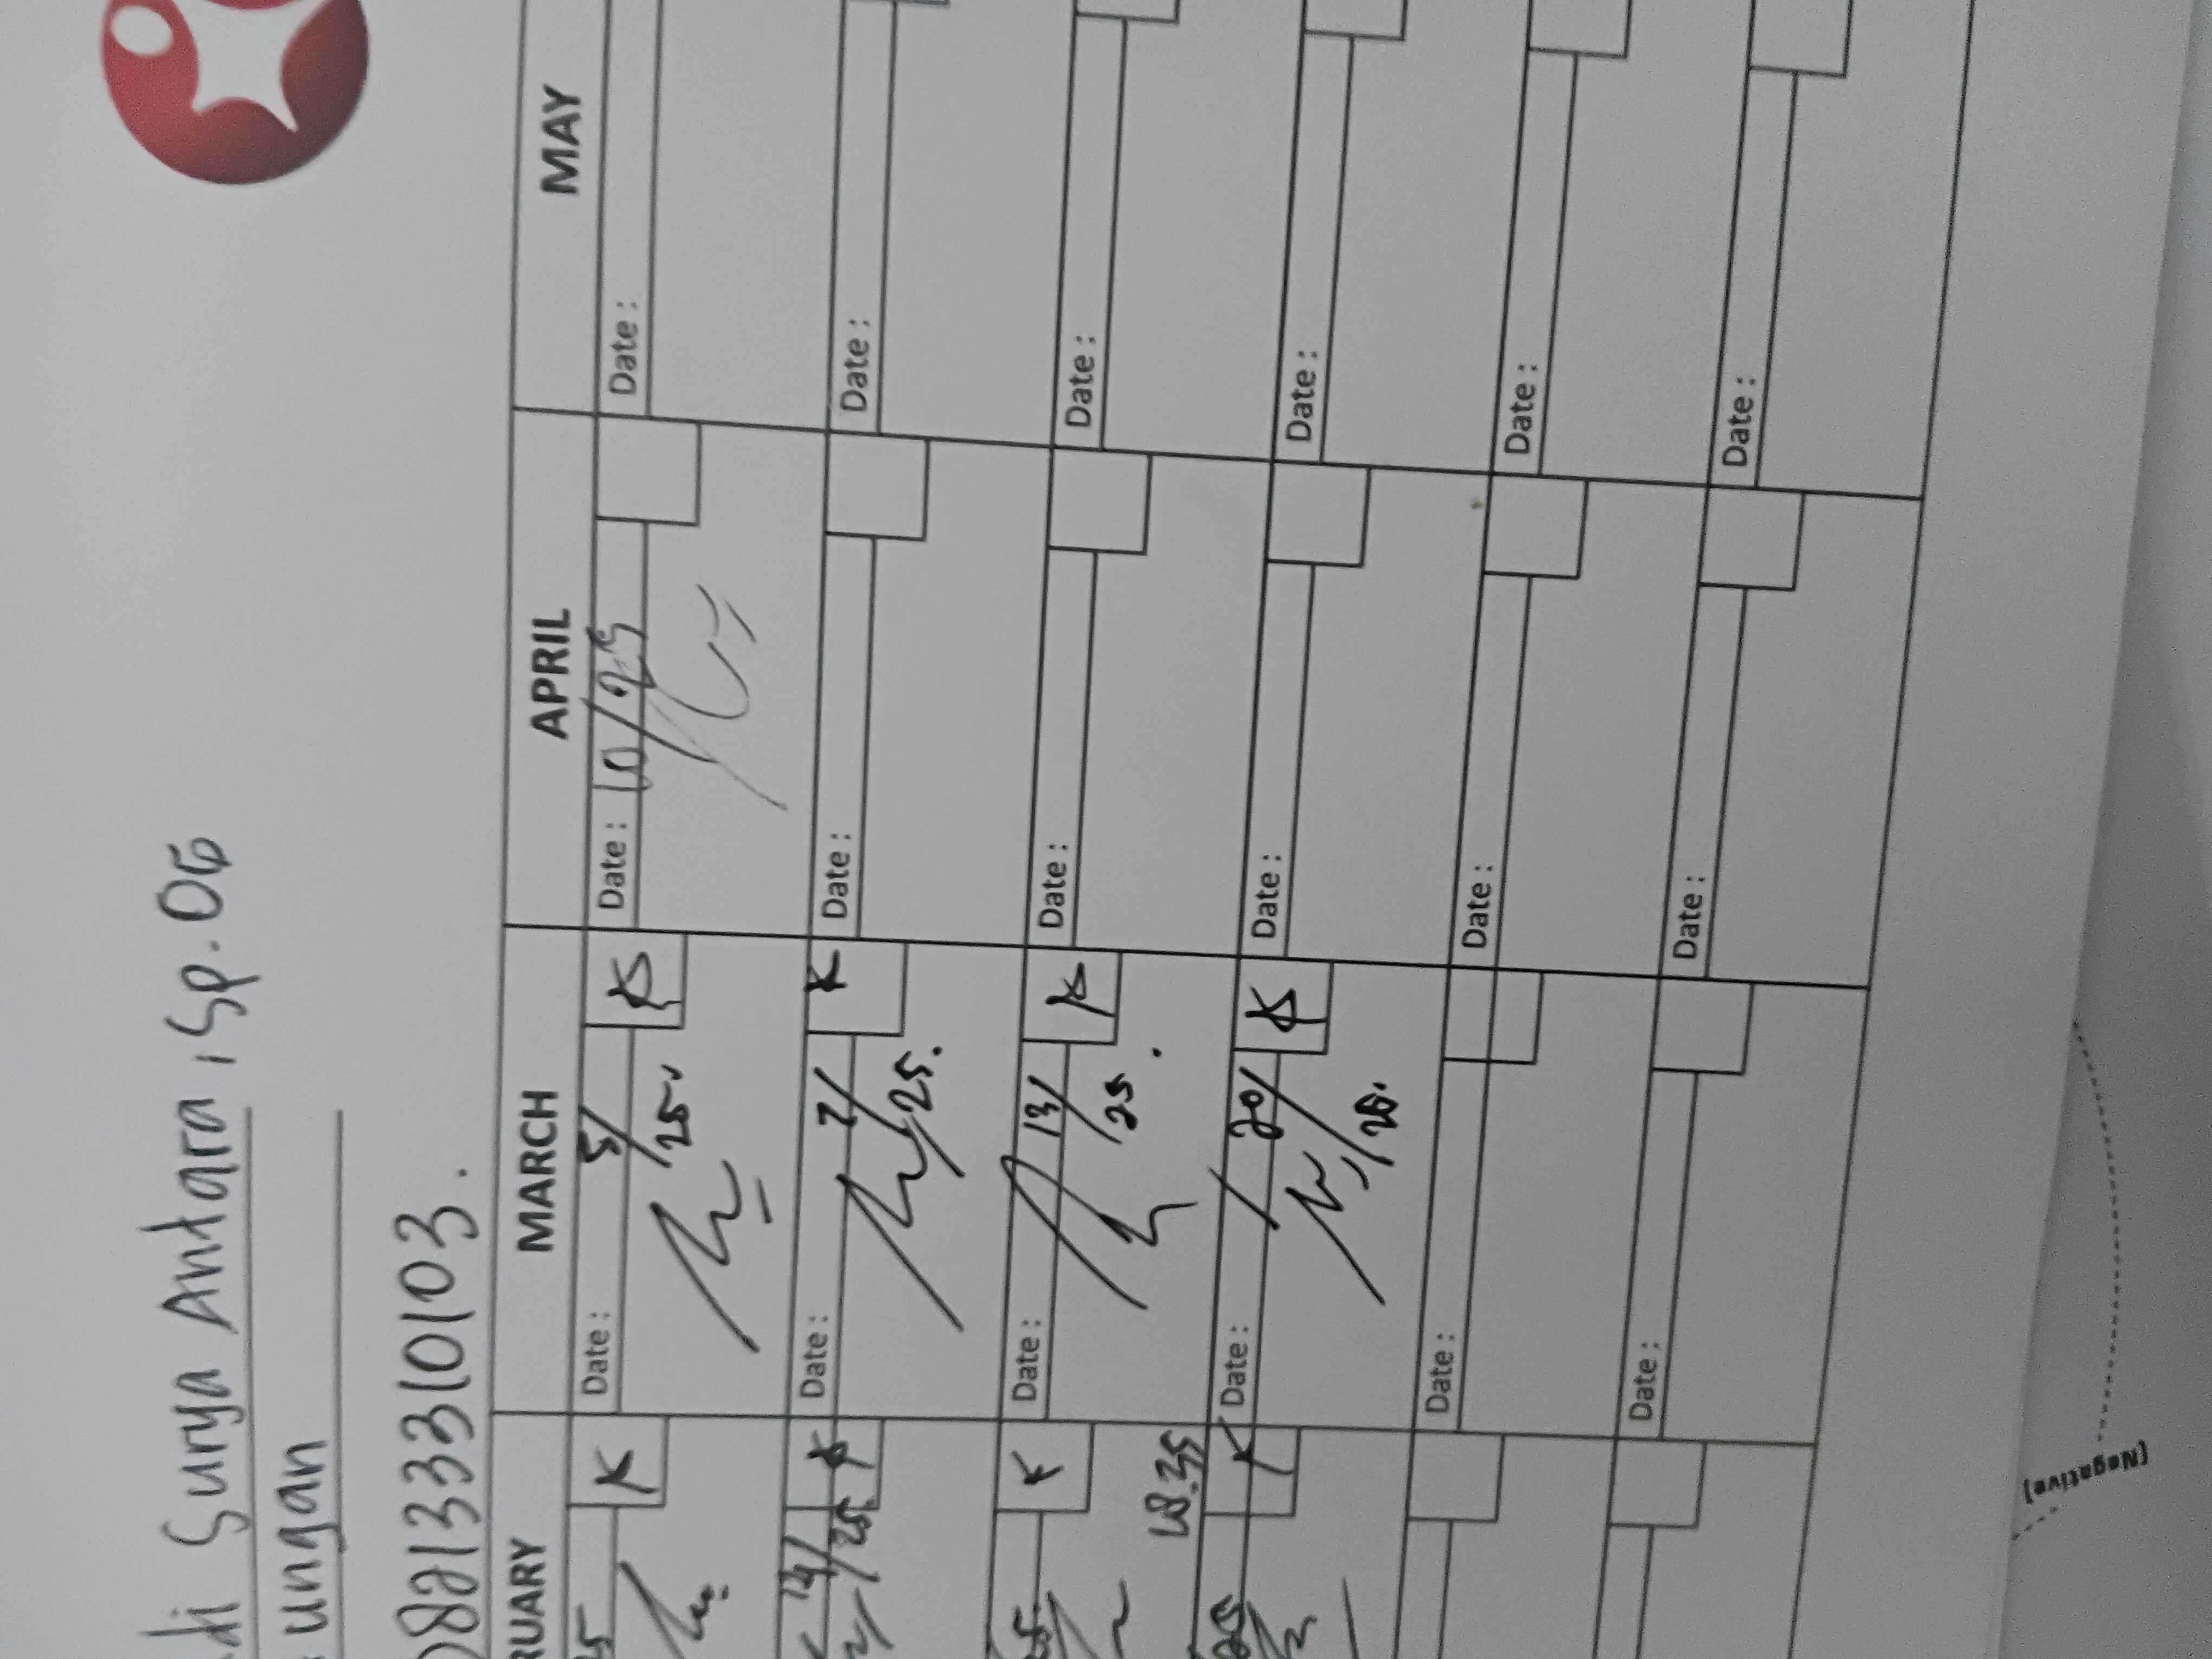 di Surya Antara, Sp.OG
ungan
082133310103.
RUARY MARCH APRIL MAY
25 K Date: 5/25 K Date: 10/25 Date:
14/25 K Date: 7/25. K Date: Date:
25. K Date: 13/25. K Date: Date:
18.35
25 K Date: 20/25. K Date: Date:
Date: Date: Date:
Date: Date: Date:
(Negative)